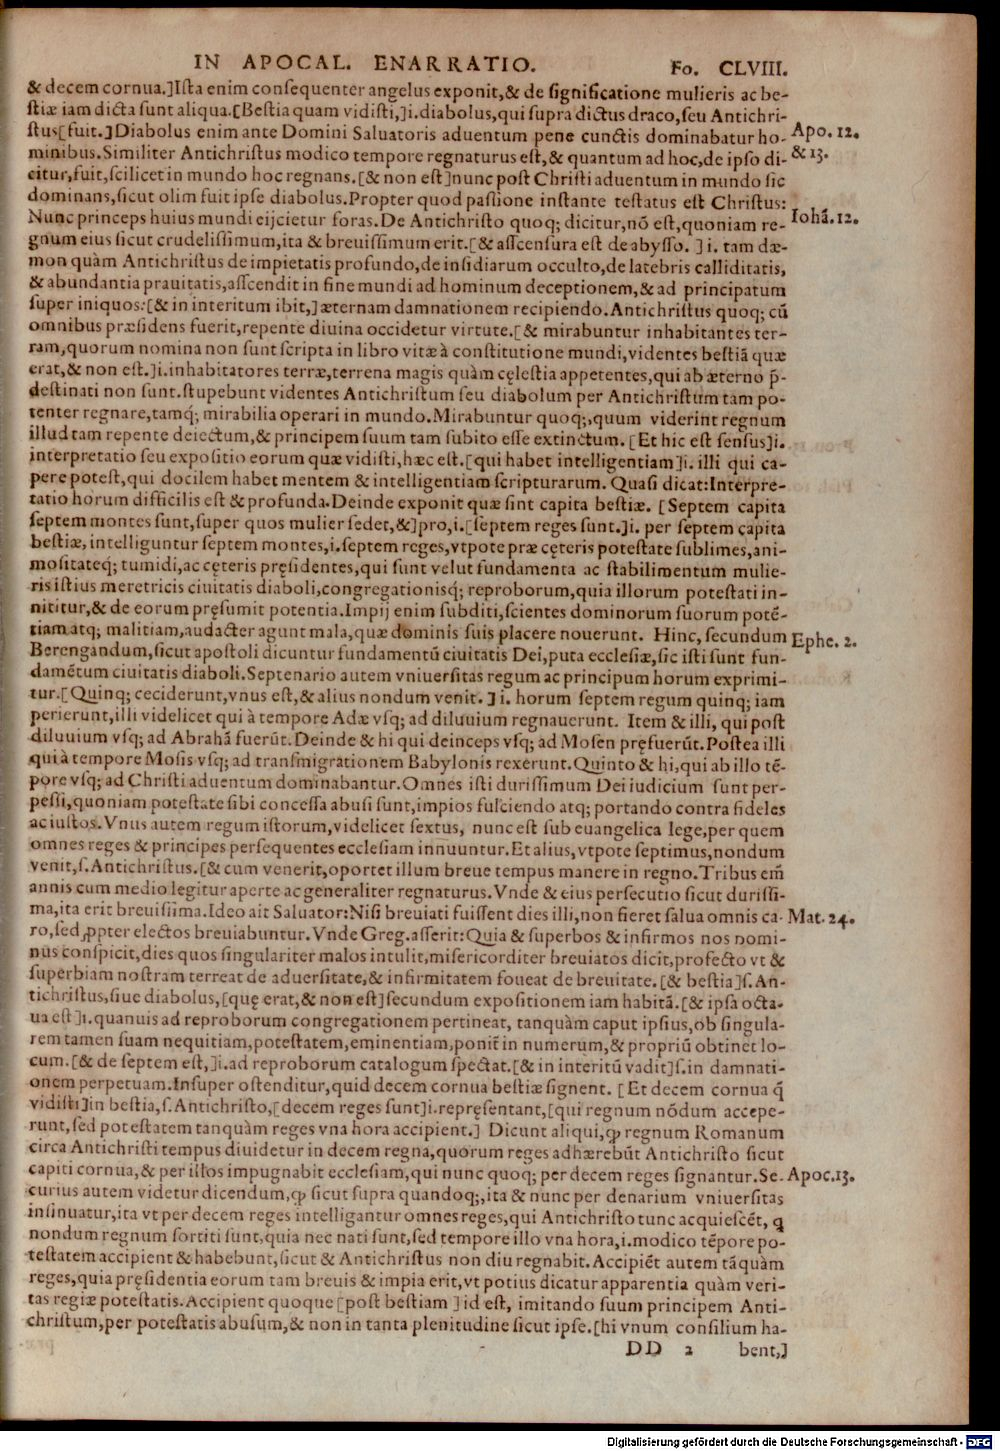 IN APOCAL. ENARRATIO. Fo. CLVIII.
& decem cornua.]Ista enim consequenter angelus exponit,& de significatione mulieris ac be-
stiæ iam dicta sunt aliqua.[Bestia quam vidisti,]i.diabolus,qui supra dictus draco,seu Antichri-
stus[fuit.]Diabolus enim ante Domini Saluatoris aduentum pene cunctis dominabatur ho-
Apo. 12.
minibus.Similiter Antichristus modico tempore regnaturus est,& quantum ad hoc,de ipso di-
& 13.
citur,fuit,scilicet in mundo hoc regnans.[& non est]nunc post Christi aduentum in mundo sic
dominans,sicut olim fuit ipse diabolus.Propter quod passione instante testatus est Christus:
Nunc princeps huius mundi eijcietur foras.De Antichristo quoq; dicitur,nõ est,quoniam re-
Iohã.12.
gnum eius sicut crudelissimum,ita & breuissimum erit.[& ascensura est de abysso. ] i. tam dæ-
mon quàm Antichristus de impietatis profundo,de insidiarum occulto,de latebris calliditatis,
& abundantia prauitatis,ascendit in fine mundi ad hominum deceptionem,& ad principatum
super iniquos:[& in interitum ibit,]æternam damnationem recipiendo.Antichristus quoq; cũ
omnibus præsidens fuerit,repente diuina occidetur virtute.[& mirabuntur inhabitantes ter-
ram,quorum nomina non sunt scripta in libro vitæ à constitutione mundi,videntes bestiã quæ
erat,& non est.]i.inhabitatores terræ,terrena magis quàm cęlestia appetentes,qui ab æterno p̃-
destinati non sunt.stupebunt videntes Antichristum seu diabolum per Antichristum tam po-
tenter regnare,tamq́; mirabilia operari in mundo.Mirabuntur quoq;,quum viderint regnum
illud tam repente deiectum,& principem suum tam subito esse extinctum. [Et hic est sensus]i.
interpretatio seu expositio eorum quæ vidisti,hæc est.[qui habet intelligentiam]i. illi qui ca-
pere potest,qui docilem habet mentem & intelligentiam scripturarum. Quasi dicat:Interpre-
tatio horum difficilis est & profunda.Deinde exponit quæ sint capita bestiæ. [Septem capita
septem montes sunt,super quos mulier sedet,&]pro,i.[septem reges sunt.]i. per septem capita
bestiæ, intelliguntur septem montes,i.septem reges,vtpote præ cęteris potestate sublimes,ani-
mositateq; tumidi,ac cęteris pręsidentes,qui sunt velut fundamenta ac stabilimentum mulie-
ris istius meretricis ciuitatis diaboli,congregationisq́; reproborum,quia illorum potestati in-
nititur,& de eorum pręsumit potentia.Impij enim subditi,scientes dominorum suorum potẽ-
tiam atq; malitiam,audacter agunt mala,quæ dominis suis placere nouerunt. Hinc, secundum
Ephe. 2.
Berengandum,sicut apostoli dicuntur fundamentũ ciuitatis Dei,puta ecclesiæ,sic isti sunt fun-
damẽtum ciuitatis diaboli.Septenario autem vniuersitas regum ac principum horum exprimi-
tur.[Quinq; ceciderunt,vnus est,& alius nondum venit. ] i. horum septem regum quinq; iam
perierunt,illi videlicet qui à tempore Adæ vsq; ad diluuium regnauerunt. Item & illi, qui post
diluuium vsq; ad Abrahã fuerũt.Deinde & hi qui deinceps vsq; ad Mosen pręfuerũt.Postea illi
qui à tempore Mosis vsq; ad transmigrationem Babylonis rexerunt.Quinto & hi,qui ab illo tẽ-
pore vsq; ad Christi aduentum dominabantur.Omnes isti durissimum Dei iudicium sunt per-
pessi,quoniam potestate sibi concessa abusi sunt,impios fulciendo atq; portando contra fideles
ac iustos.Vnus autem regum istorum,videlicet sextus, nunc est sub euangelica lege,per quem
omnes reges & principes persequentes ecclesiam innuuntur.Et alius,vtpote septimus,nondum
venit,s.Antichristus.[& cum venerit,oportet illum breue tempus manere in regno.Tribus em̃
annis cum medio legitur aperte ac generaliter regnaturus.Vnde & eius persecutio sicut durissi-
ma,ita erit breuissima.Ideo ait Saluator:Nisi breuiati fuissent dies illi,non fieret salua omnis ca-
Mat. 24.
ro,sed ꝓpter electos breuiabuntur.Vnde Greg.asserit:Quia & superbos & infirmos nos nomi-
nus conspicit,dies quos singulariter malos intulit,misericorditer breuiatos dicit,profecto vt &
superbiam nostram terreat de aduersitate,& infirmitatem foueat de breuitate.[& bestia]s.An-
tichristus,siue diabolus,[quę erat,& non est]secundum expositionem iam habitã.[& ipsa octa-
ua est]i.quanuis ad reproborum congregationem pertineat, tanquàm caput ipsius,ob singula-
rem tamen suam nequitiam,potestatem,eminentiam,ponit̃ in numerum,& propriũ obtinet lo-
cum.[& de septem est,]i.ad reproborum catalogum spectat.[& in interitũ vadit]s.in damnati-
onem perpetuam.Insuper ostenditur,quid decem cornua bestiæ signent. [Et decem cornua q̃
vidisti]in bestia,s.Antichristo,[decem reges sunt]i.repręsentant,[qui regnum nõdum accepe-
runt,sed potestatem tanquàm reges vna hora accipient.] Dicunt aliqui,ꝙ regnum Romanum
circa Antichristi tempus diuidetur in decem regna,quorum reges adhærebũt Antichristo sicut
capiti cornua,& per illos impugnabit ecclesiam,qui nunc quoq; per decem reges signantur.Se-
Apoc.13.
curius autem videtur dicendum,ꝙ sicut supra quandoq;,ita & nunc per denarium vniuersitas
insinuatur,ita vt per decem reges intelligantur omnes reges,qui Antichristo tunc acquiescẽt, q
nondum regnum sortiti sunt,quia nec nati sunt,sed tempore illo vna hora,i.modico tẽpore po-
testatem accipient & habebunt,sicut & Antichristus non diu regnabit.Accipiẽt autem tãquàm
reges,quia pręsidentia eorum tam breuis & impia erit,vt potius dicatur apparentia quàm veri-
tas regiæ potestatis.Accipient quoque [post bestiam ] id est, imitando suum principem Anti-
christum,per potestatis abusum,& non in tanta plenitudine sicut ipse.[hi vnum consilium ha-
DD 2 bent,]
Digitalisierung gefördert durch die Deutsche Forschungsgemeinschaft - DFG